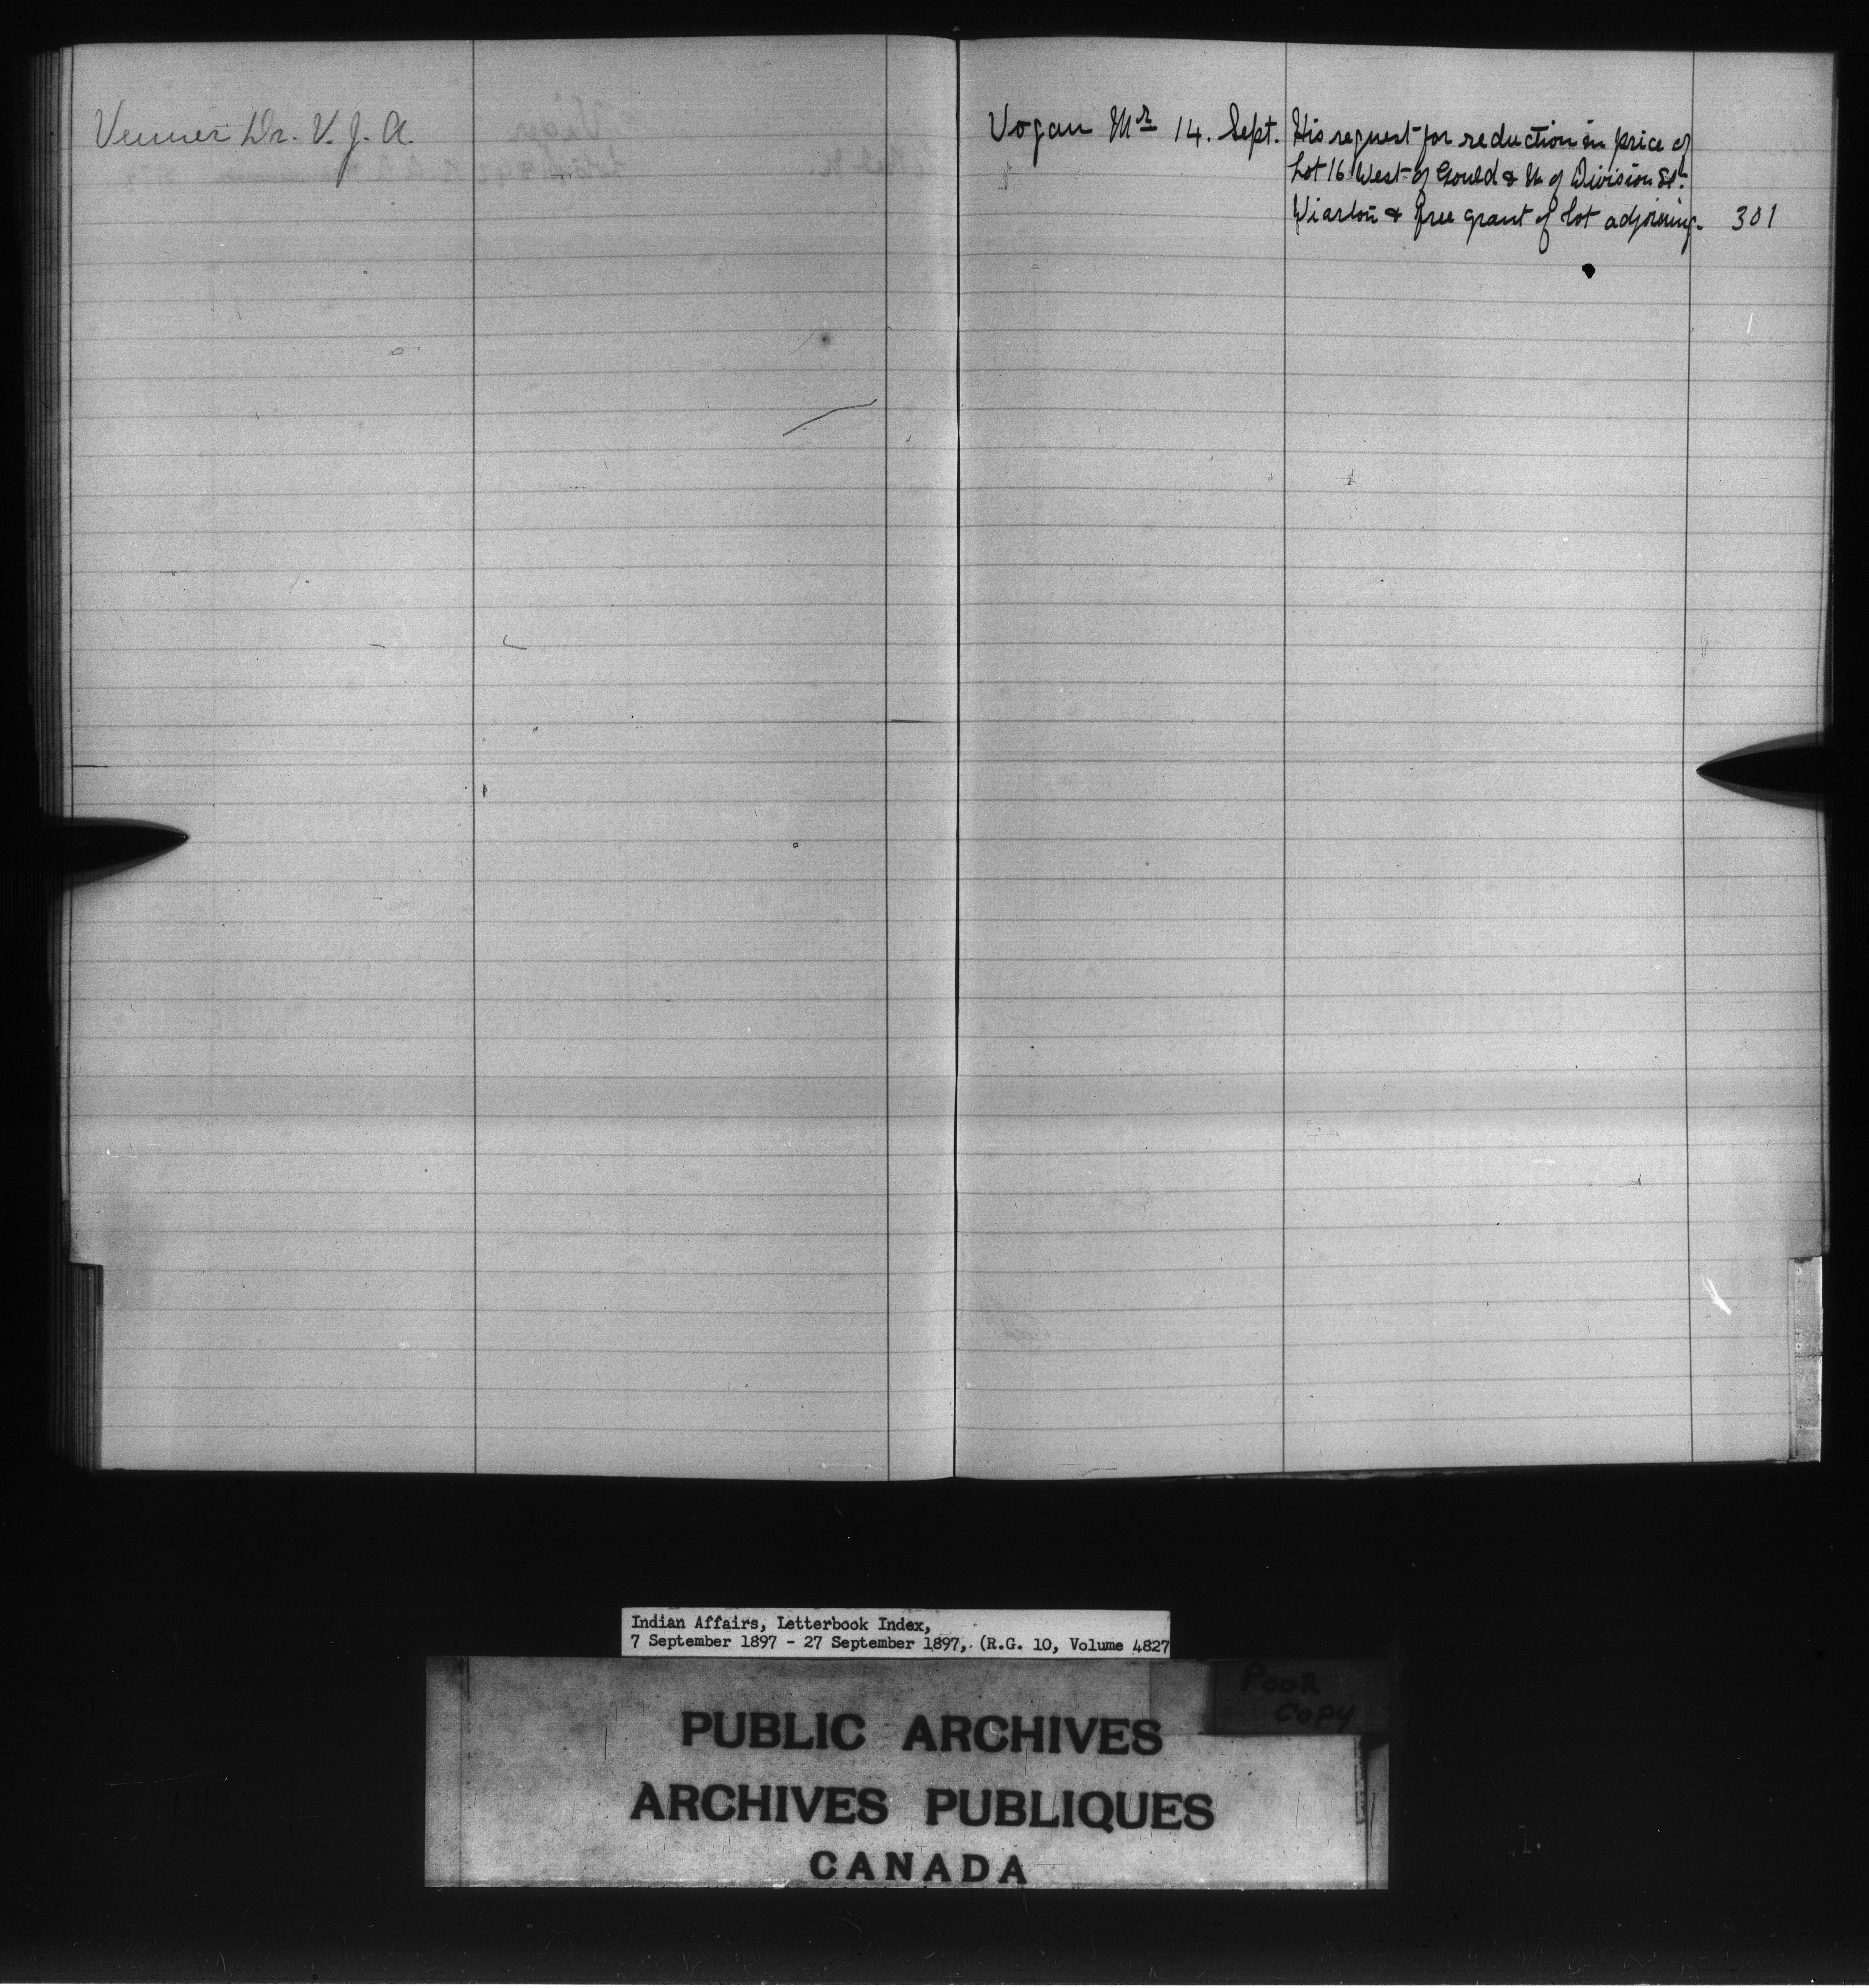 Venner Dr. V. J. A.
Vogan Mr 14. Sept. His request for reduction in price of
Lot 16 West of Gould & N of Division St.
Wiarton & free grant of lot adjoining. 301
Indian Affairs, Letterbook Index,
7 September 1897 - 27 September 1897, (R.G. 10, Volume 4827
POOR
COPY
PUBLIC ARCHIVES
ARCHIVES PUBLIQUES
CANADA